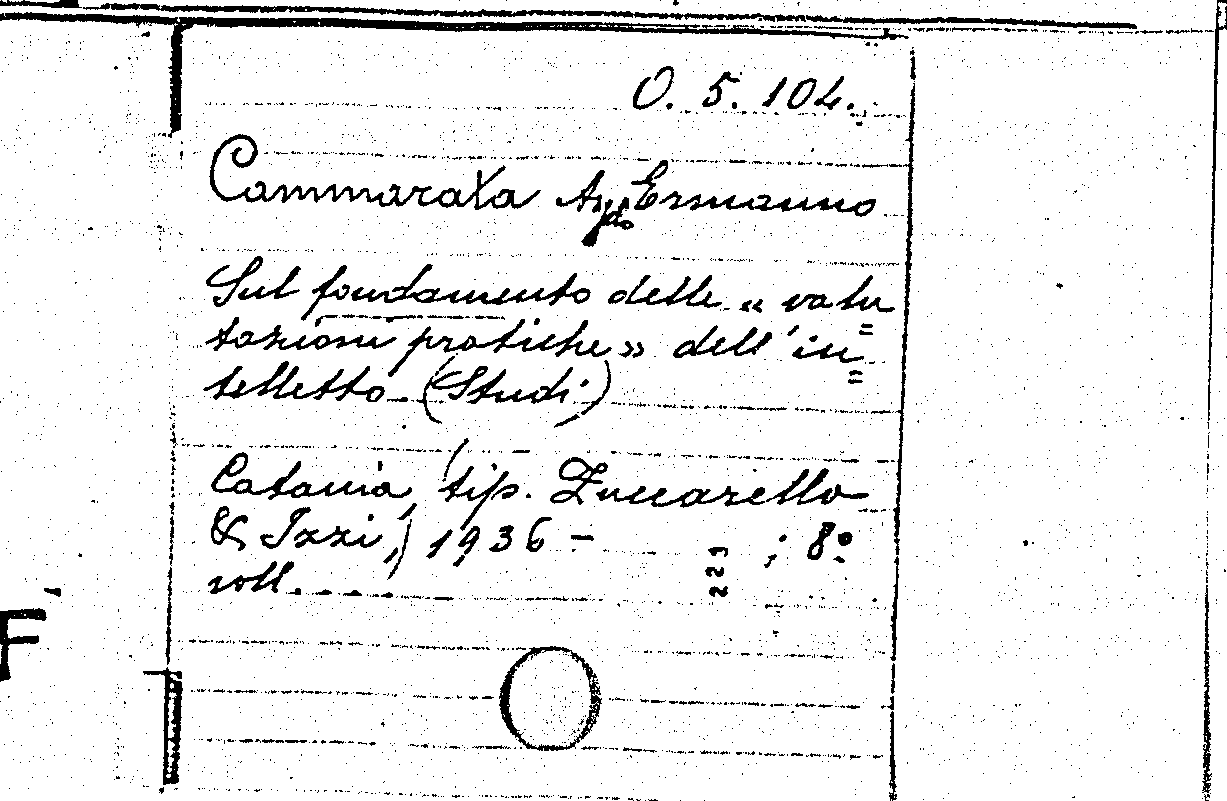 O. 5. 104.
Cammarata A. Ermanno
Sul fondamento delle « valu
tazioni pratiche » dell'in
telletto. (Studi)
Catania, (tip. Zuccarello
& Izzi,) 1936 - ; 8º
voll. . . . .
223
F